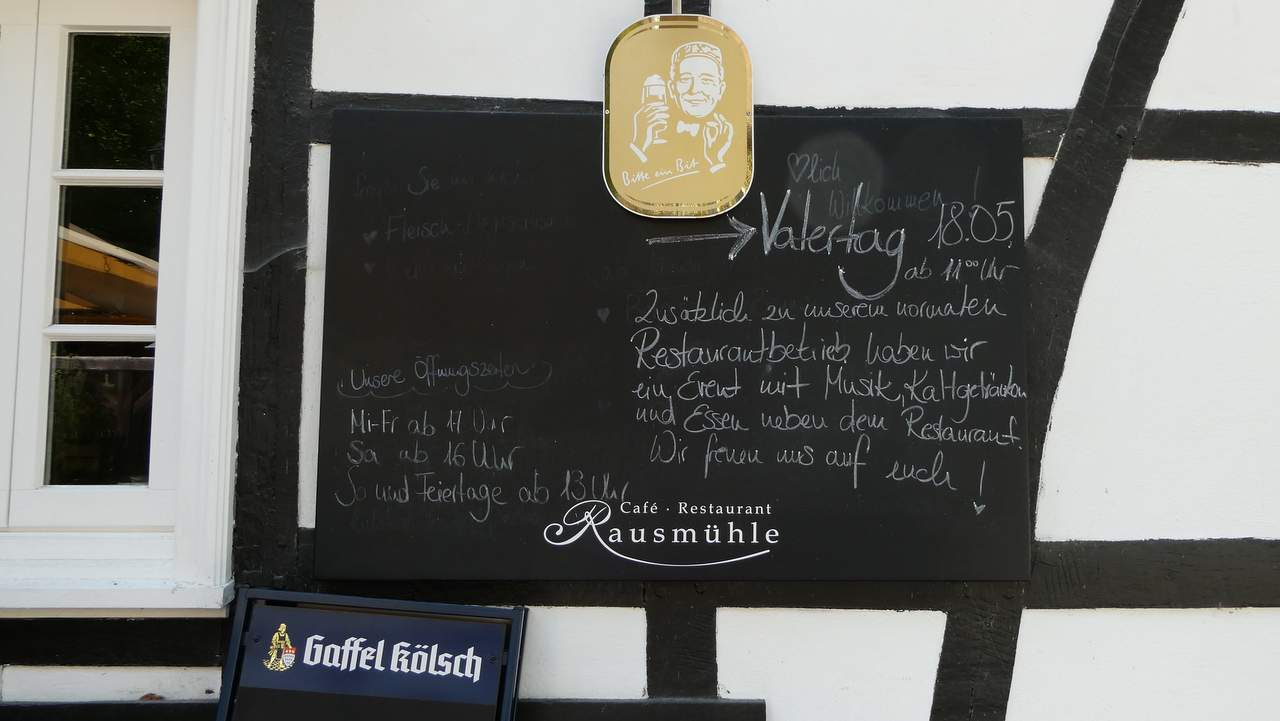 Bitte ein Bit
♡lich
Willkommen!
→ Vatertag 18.05.
ab 11⁰⁰ Uhr
Zusätzlich zu unserem normalen
Restaurantbetrieb haben wir
ein Event mit Musik, Kaltgetränken
und Essen neben dem Restaurant.
Wir freuen uns auf euch!
Se
Fleisch
Unsere Öffnungszeiten
Mi-Fr ab 17 Uhr
Sa ab 16 Uhr
So und Feiertage ab 13 Uhr
Café · Restaurant
Rausmühle
Gaffel Kölsch